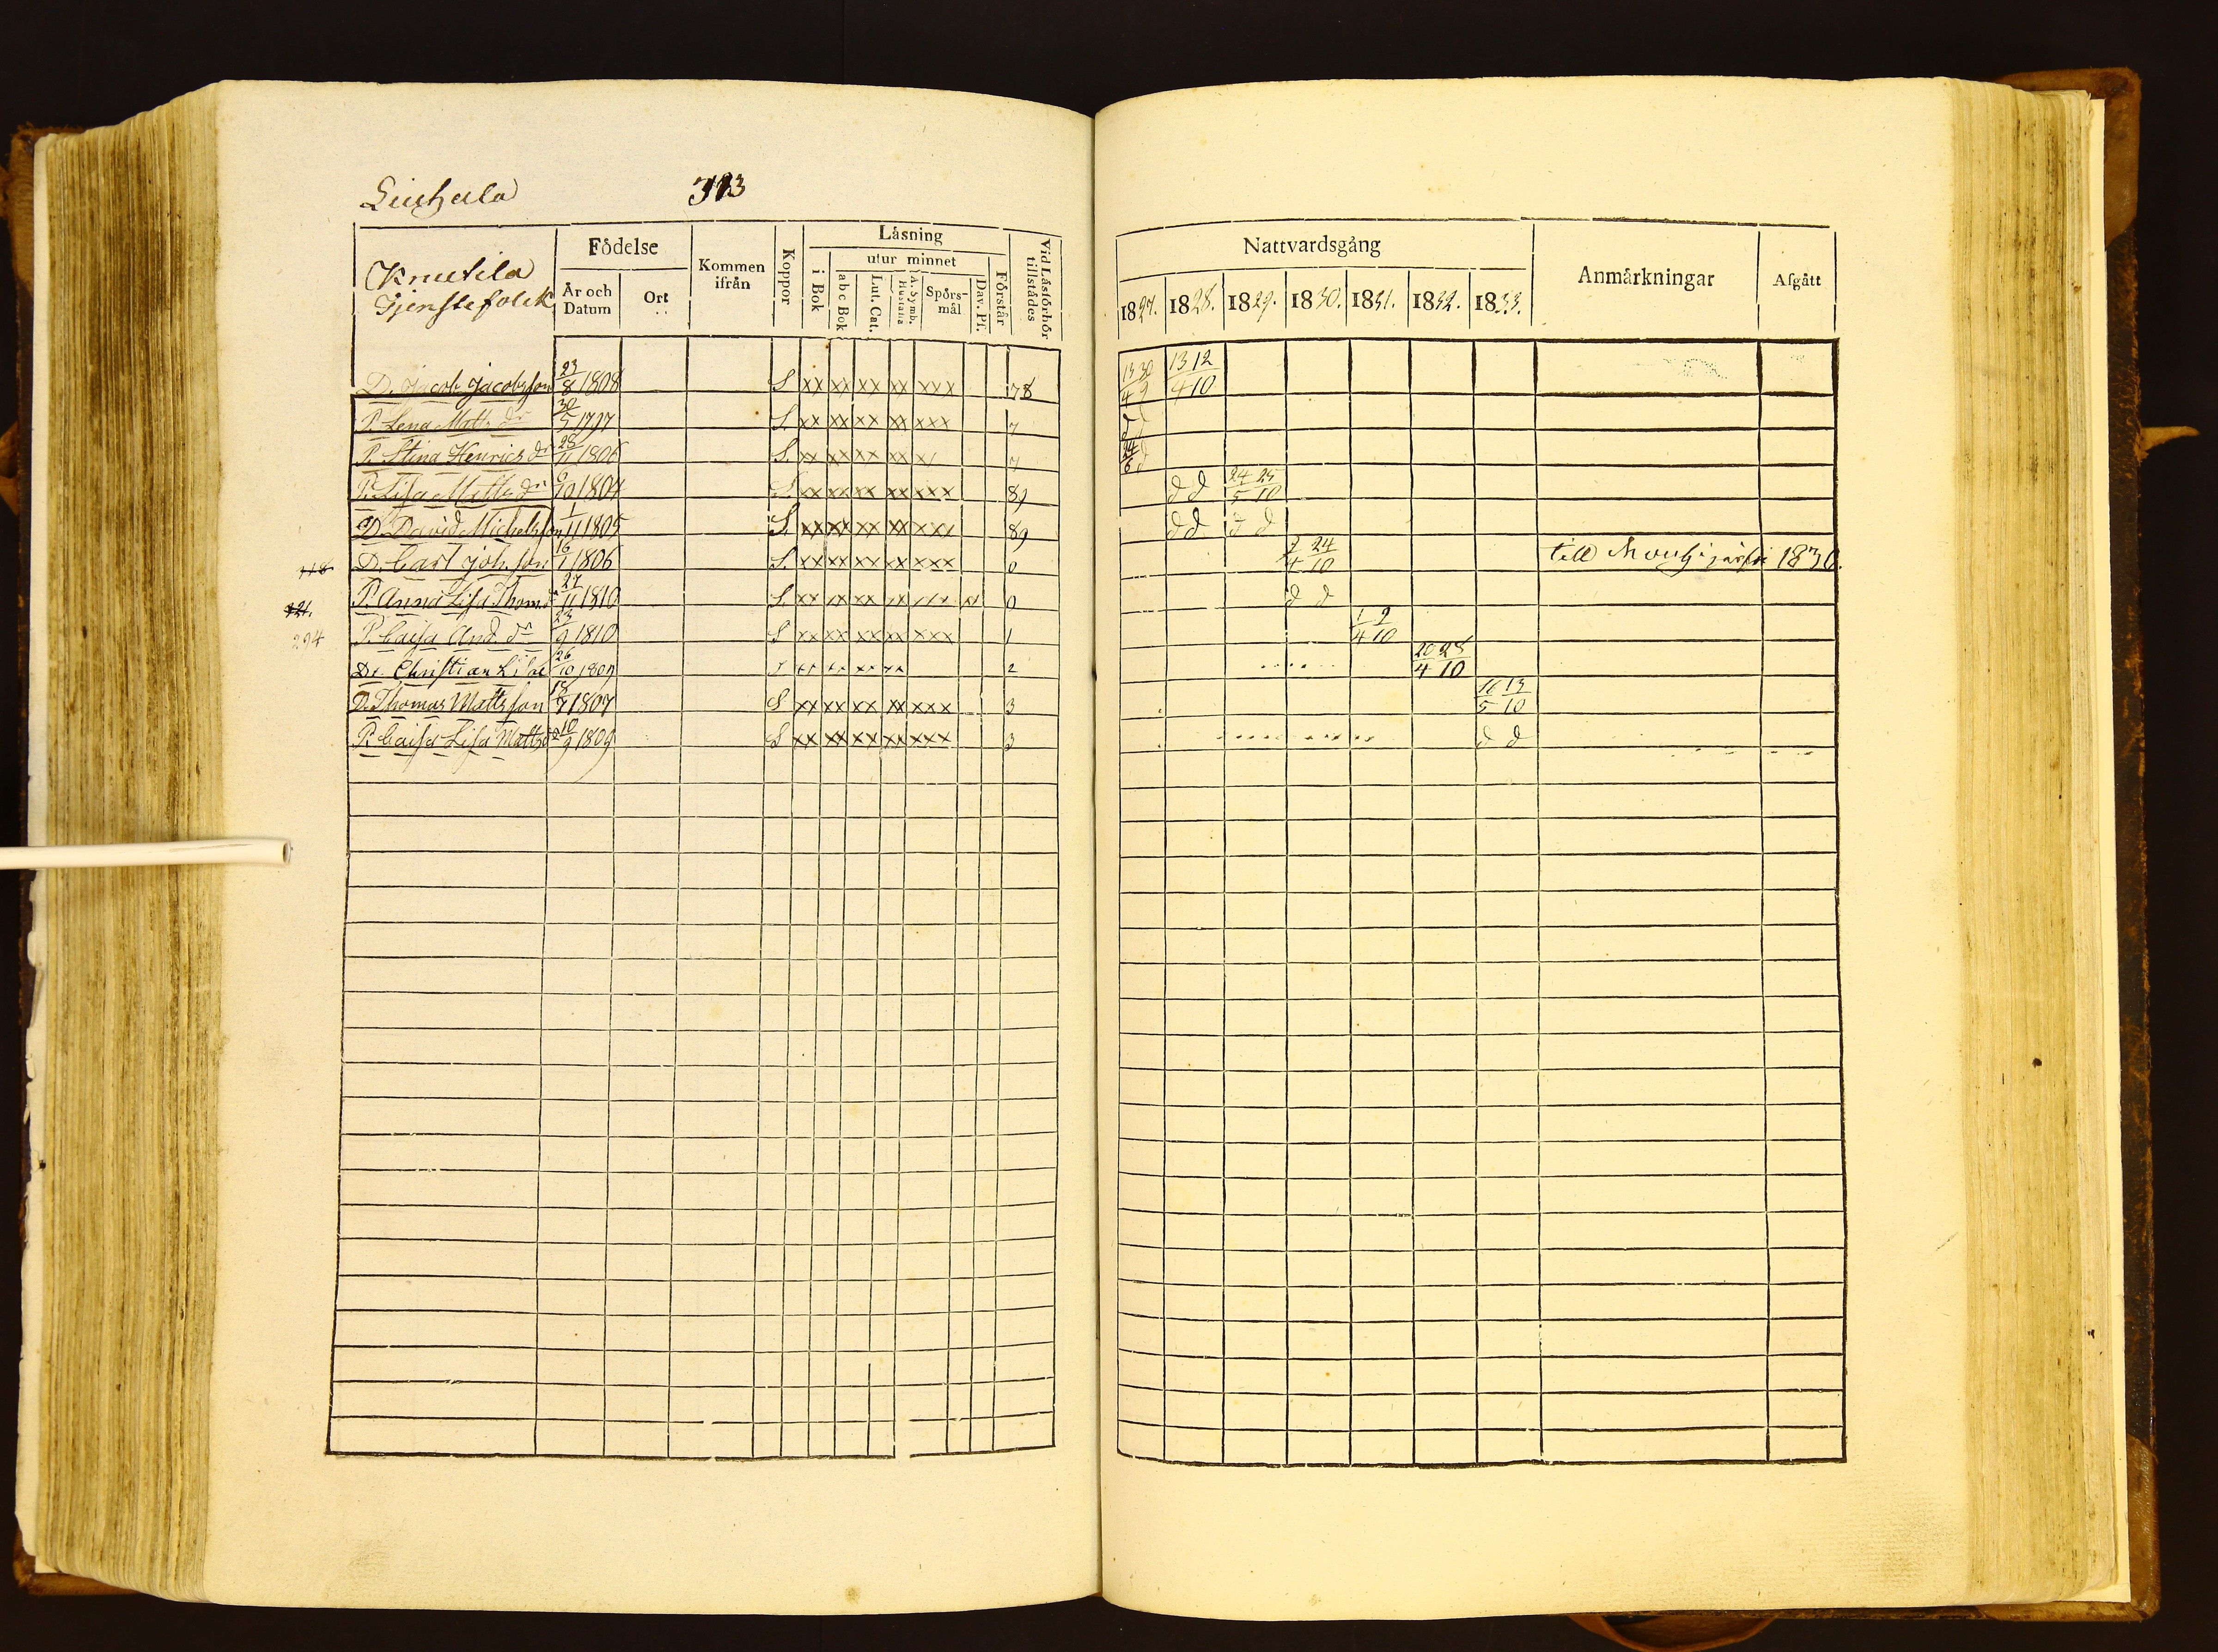 Liuhala 313
Knutila
Tjenstefolck
Födelse
År och Datum
Ort
Kommen ifrån
Koppor
Läsning
i Bok
utur minnet
a b c Bok
Lut. Cat.
A. Symb. Hustafla
Spörsmål
Dav. Ps.
Förstår
Vid Läsförhör tillstådes
Nattvardsgång
1827. 1828. 1829. 1830. 1831. 1832. 1833.
Anmärkningar
Afgått
D. Jacob Jacobsson 23/8 1808 S xx xx xx xx xxx 78 13 30/4 9 13 12/4 10
P. Lena Matts dr 30/5 1797 S. xx xx xx xx xxx 7 d d
P. Stina Henrics dr 28/11 1806 S. xx xx xx xx x/ 7 24/6 d
P. Lisa Matts dr 6/10 1804 S. xx xx xx xx xxx 89 d d 24 25/5 10
D. David Michelsson 1/11 1805 S. xx xx xx xx xxx 89 d d d d
118 D. Carl Joh. son 16/1 1806 S. xx xx xx xx xxx 0 7 24/4 10 till 1830.
121. P. Anna Lisa Thom. dr 27/11 1810 S. xx xx xx xx xxx xx 0 d d
294 P. Caisa And. dr 23/9 1810 S xx xx xx xx xxx 1 1 9/4 10
Dr. Christian 26/10 1809 xx xx xx xx 2 20 28/4 10
D. Thomas Mattsson 18/7 1807 S xx xx xx xx xxx 3 16 13/5 10
P. Caisa Lisa Matts dr 10/9 1809 S xx xx xx xx xxx 3 d d